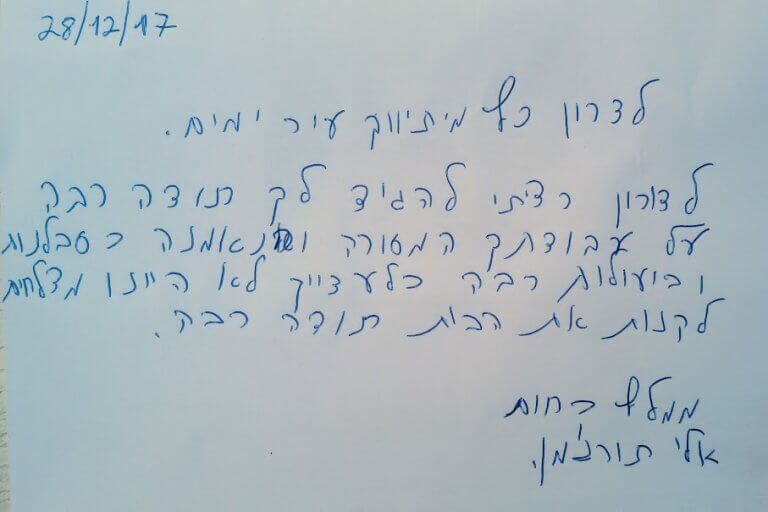 28/12/17
לדרון כץ מתיווק עיר ימים.
לדורון רציתי להגיד לך תודה רבה
על עבודתך המסורה והנאמנה בסבלנות
וביעילות רבה בלעדייך לא היינו מצלחים
לקנות את הבית תודה רבה.
ממליץ בחום
אלי תורג'מן.